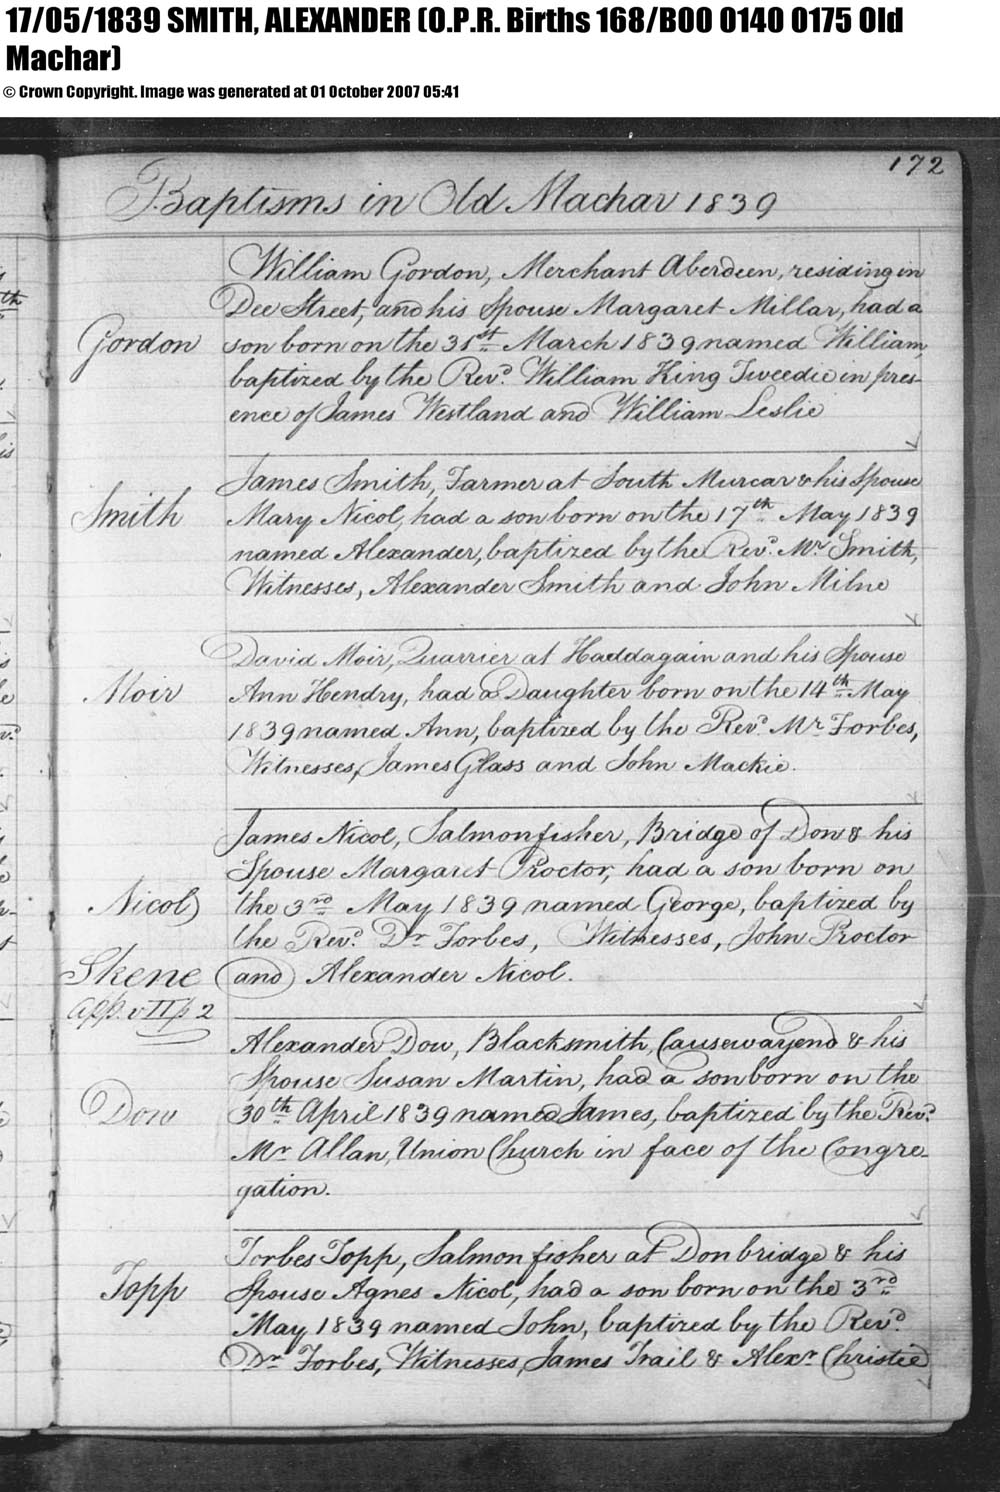 17/05/1839 SMITH, ALEXANDER (O.P.R. Births 168/B00 0140 0175 Old
Machar)
© Crown Copyright. Image was generated at 01 October 2007 05:41
172
Baptisms in Old Machar 1839
Gordon
William Gordon, Merchant Aberdeen, residing in
Dee Street, and his Spouse Margaret Millar, had a
son born on the 31st March 1839 named William,
baptized by the Revd. William King Tweedie in pres-
ence of James Westland and William Leslie
Smith
James Smith, Farmer at South Murcar & his Spouse
Mary Nicol, had a son born on the 17th May 1839
named Alexander, baptized by the Revd. Mr Smith,
Witnesses, Alexander Smith and John Milne
Moir
David Moir, Quarrier at Haddagain and his Spouse
Ann Hendry, had a Daughter born on the 14th May
1839 named Ann, baptized by the Revd. Mr Forbes,
Witnesses, James Glass and John Mackie.
Nicol
James Nicol, Salmonfisher, Bridge of Don & his
Spouse Margaret Proctor, had a son born on
the 3rd May 1839 named George, baptized by
the Revd. Dr Forbes, Witnesses, John Proctor
and Alexander Nicol.
Skene
app. v II p 2
Dow
Alexander Dow, Blacksmith, Causewayend & his
Spouse Susan Martin, had a son born on the
30th April 1839 named James, baptized by the Revd.
Mr Allan, Union Church in face of the Congre-
gation.
Topp
Forbes Topp, Salmon fisher at Donbridge & his
Spouse Agnes Nicol, had a son born on the 3rd
May 1839 named John, baptized by the Revd.
Dr Forbes, Witnesses, James Trail & Alexr Christie